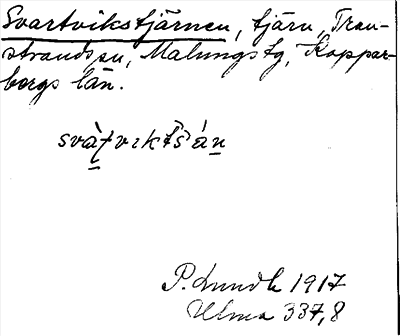 Svartvikstjärnen, tjärn, Tran-
strands sn, Malungs tg, Koppar-
bergs län.
P. Lundh 1917
Ulma 337,8